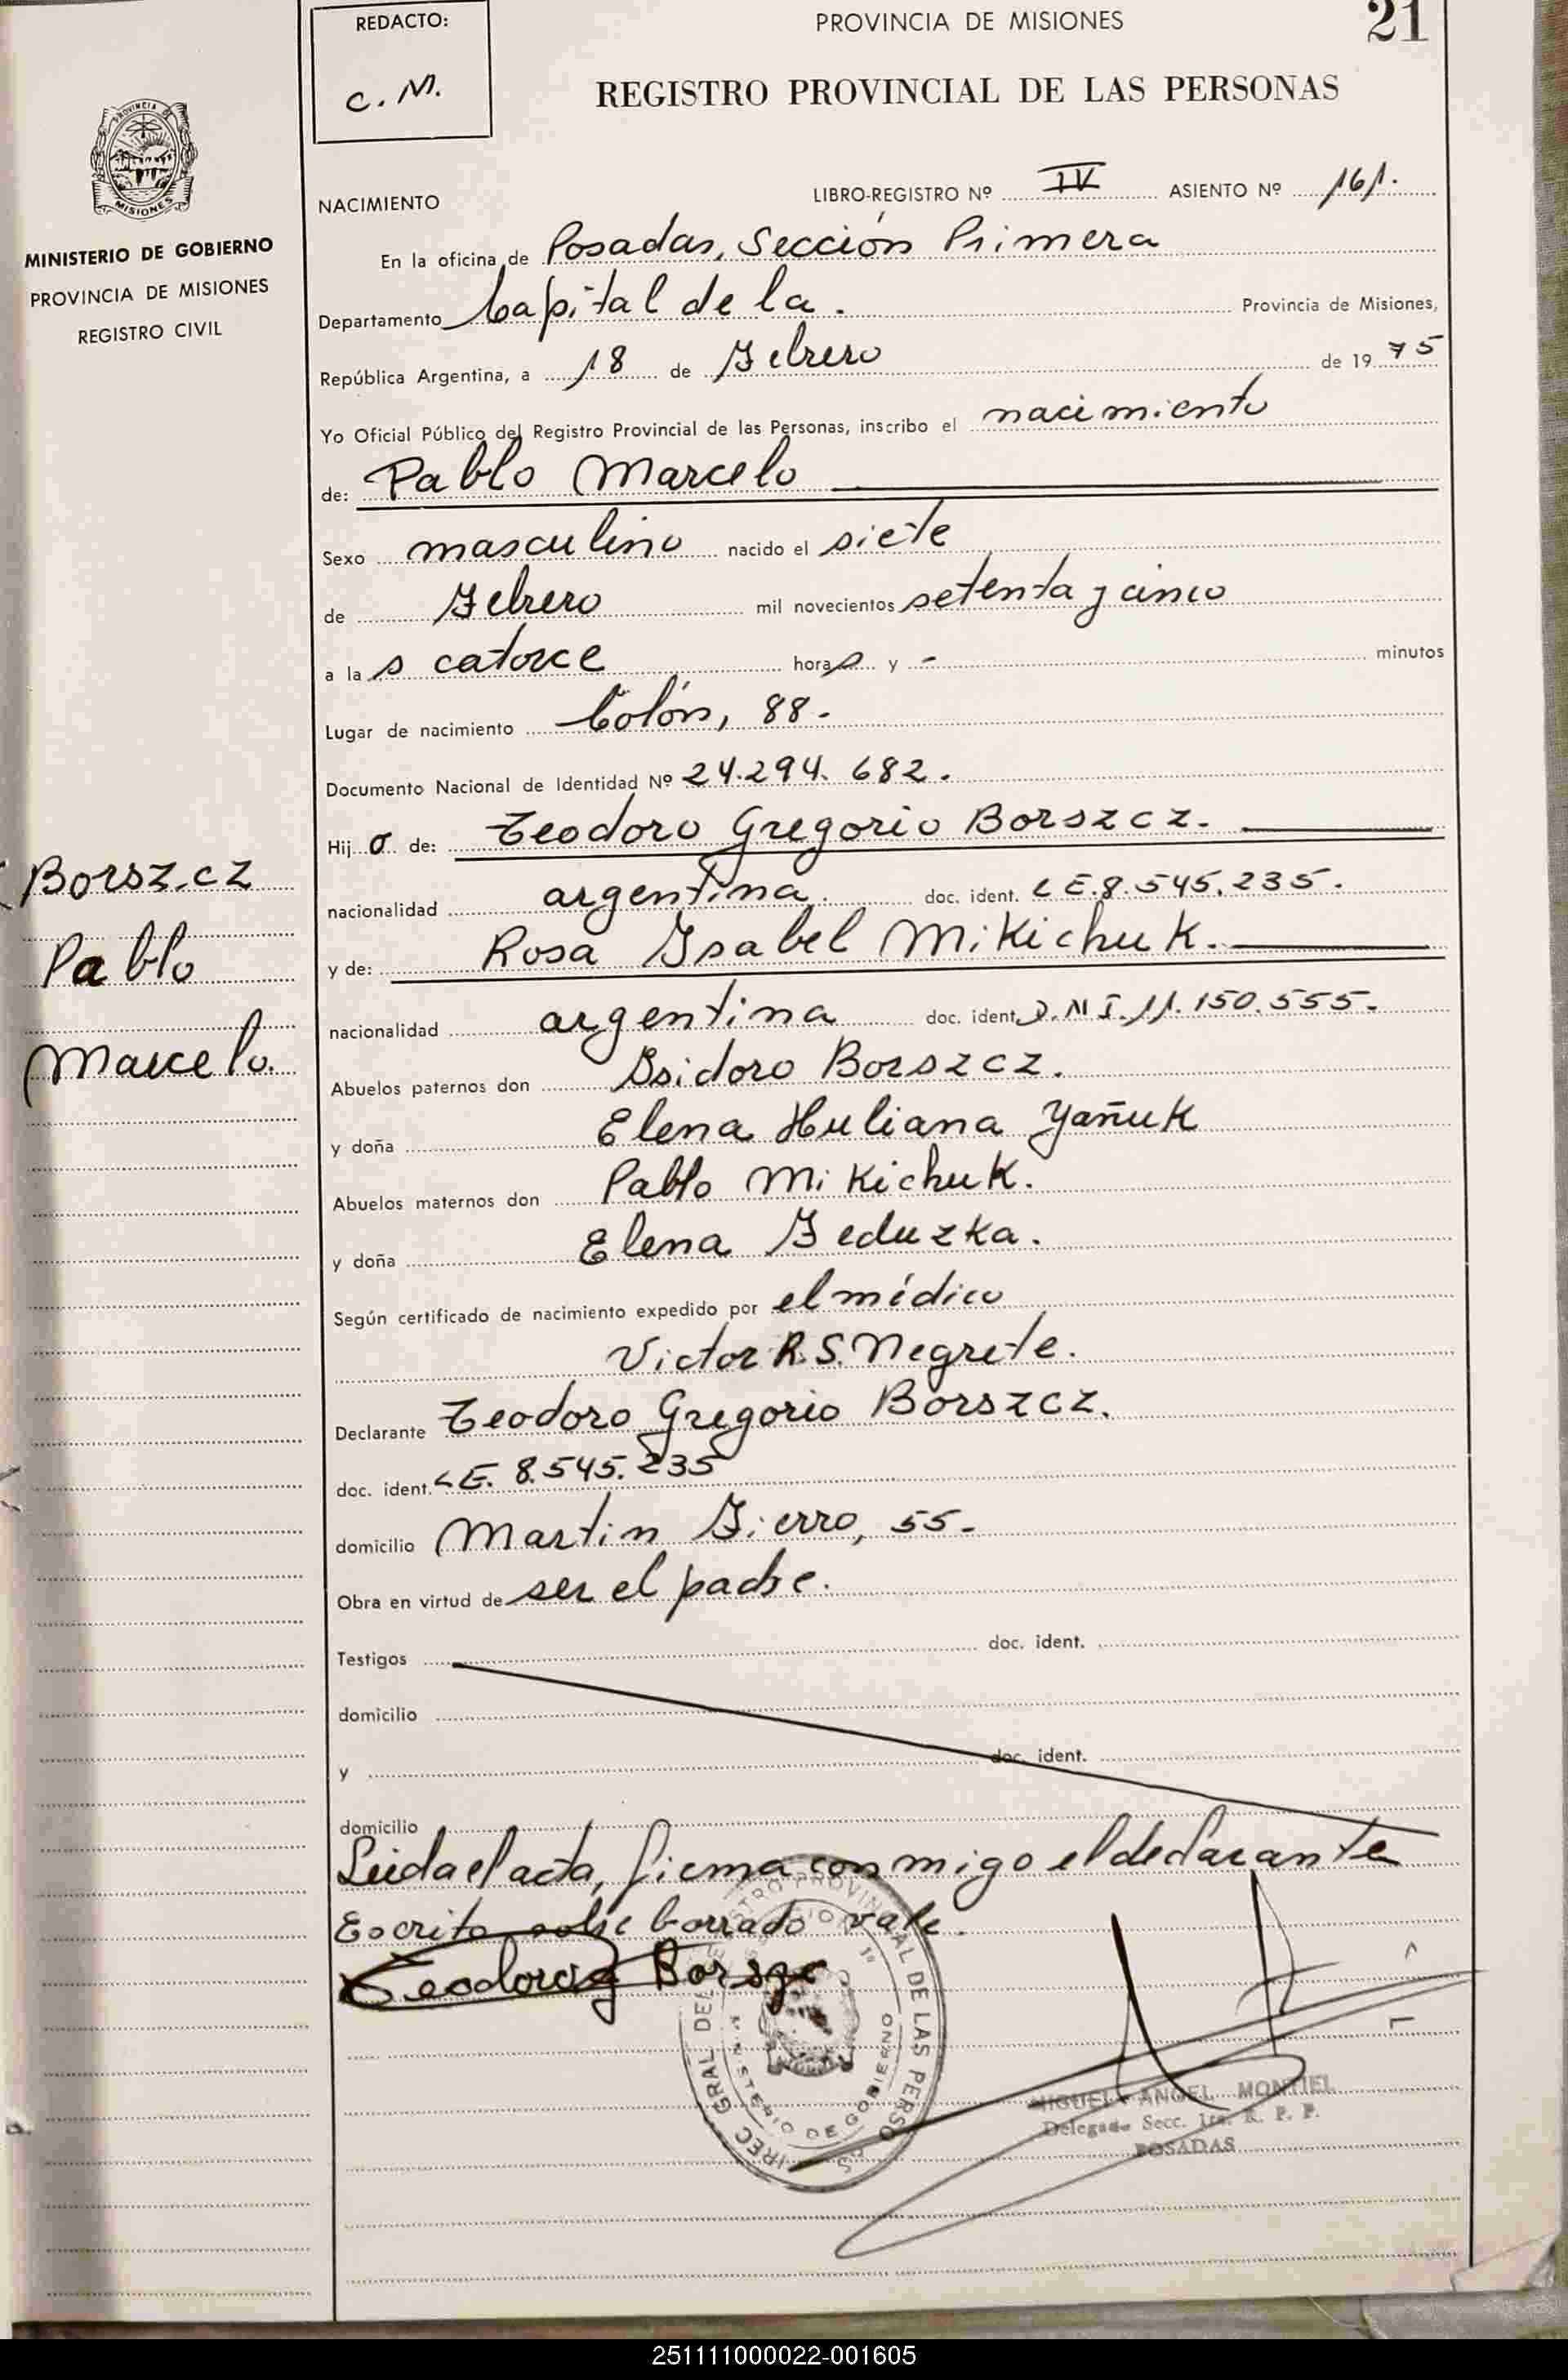 REDACTO:
C. M.
PROVINCIA DE MISIONES
21
REGISTRO PROVINCIAL DE LAS PERSONAS
PROVINCIA DE
MISIONES
MINISTERIO DE GOBIERNO
PROVINCIA DE MISIONES
REGISTRO CIVIL
NACIMIENTO LIBRO-REGISTRO Nº IV ASIENTO Nº 161.
En la oficina de Posadas, Sección Primera
Departamento Capital de la. Provincia de Misiones,
República Argentina, a 18 de Febrero de 1975
Yo Oficial Público del Registro Provincial de las Personas, inscribo el nacimiento
de: Pablo Marcelo
Sexo masculino nacido el siete
de Febrero mil novecientos setenta y cinco
a las catorce horas y - minutos
Lugar de nacimiento Colón, 88.
Documento Nacional de Identidad Nº 24.294.682.
Hijo de: Teodoro Gregorio Borszcz.
nacionalidad argentina. doc. ident. LE.8.545.235.
y de: Rosa Isabel Mikichuk.
nacionalidad argentina doc. ident. D.N.I.11.150.555.
Abuelos paternos don Isidoro Borszcz.
y doña Elena Huliana Yañuk
Abuelos maternos don Pablo Mikichuk.
y doña Elena Feduzka.
Según certificado de nacimiento expedido por el médico
Victor R.S. Negrete.
Declarante Teodoro Gregorio Borszcz.
doc. ident. LE. 8.545.235
domicilio Martin Fierro, 55.
Obra en virtud de ser el padre.
Testigos doc. ident.
domicilio
y doc. ident.
domicilio
Leida el acta, firma conmigo el declarante
Escrito sobre borrado vale.
Borszcz
Pablo
Marcelo.
MINISTERIO DE GOBIERNO
MIGUEL ANGEL MONTIEL
Delegado Secc. 1ra. R. P. P.
POSADAS
251111000022-001605